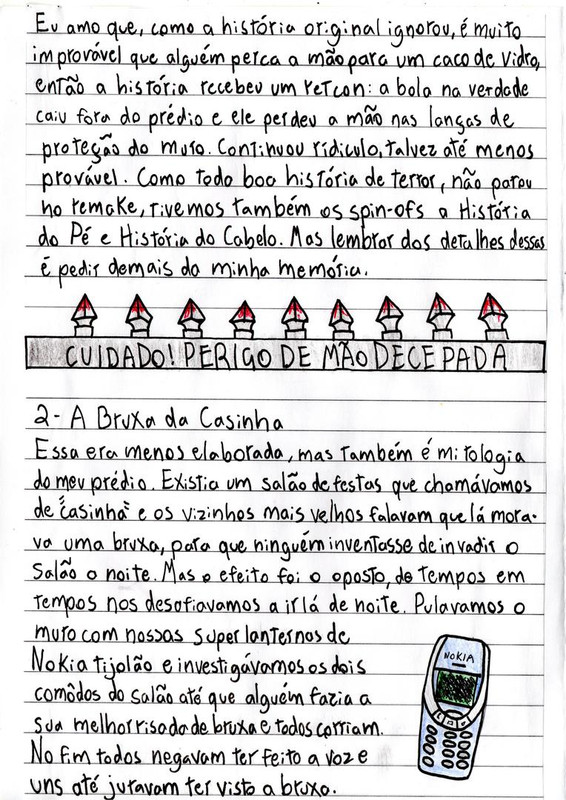 Eu amo que, como a história original ignorou, é muito
improvável que alguém perca a mão para um caco de vidro,
então a história recebeu um retcon: a bola na verdade
caiu fora do prédio e ele perdeu a mão nas lanças de
proteção do muro. Continuou ridículo, talvez até menos
provável. Como toda boa história de terror, não parou
no remake, tivemos também os spin-ofs a História
do Pé e História do Cabelo. Mas lembrar dos detalhes dessas
é pedir demais da minha memória.
CUIDADO! PERIGO DE MÃO DECEPADA
2- A Bruxa da Casinha
Essa era menos elaborada, mas também é mitologia
do meu prédio. Existia um salão de festas que chamávamos
de "casinha" e os vizinhos mais velhos falavam que lá mora-
va uma bruxa, para que ninguém inventasse de invadir o
salão a noite. Mas o efeito foi o oposto, de tempos em
tempos nos desafiavamos a ir lá de noite. Pulavamos o
muro com nossas super lanternas de
Nokia tijolão e investigávamos os dois
comôdos do salão até que alguém fazia a
sua melhor risada de bruxa e todos corriam.
No fim todos negavam ter feito a voz e
uns até juravam ter visto a bruxa.
NOKIA